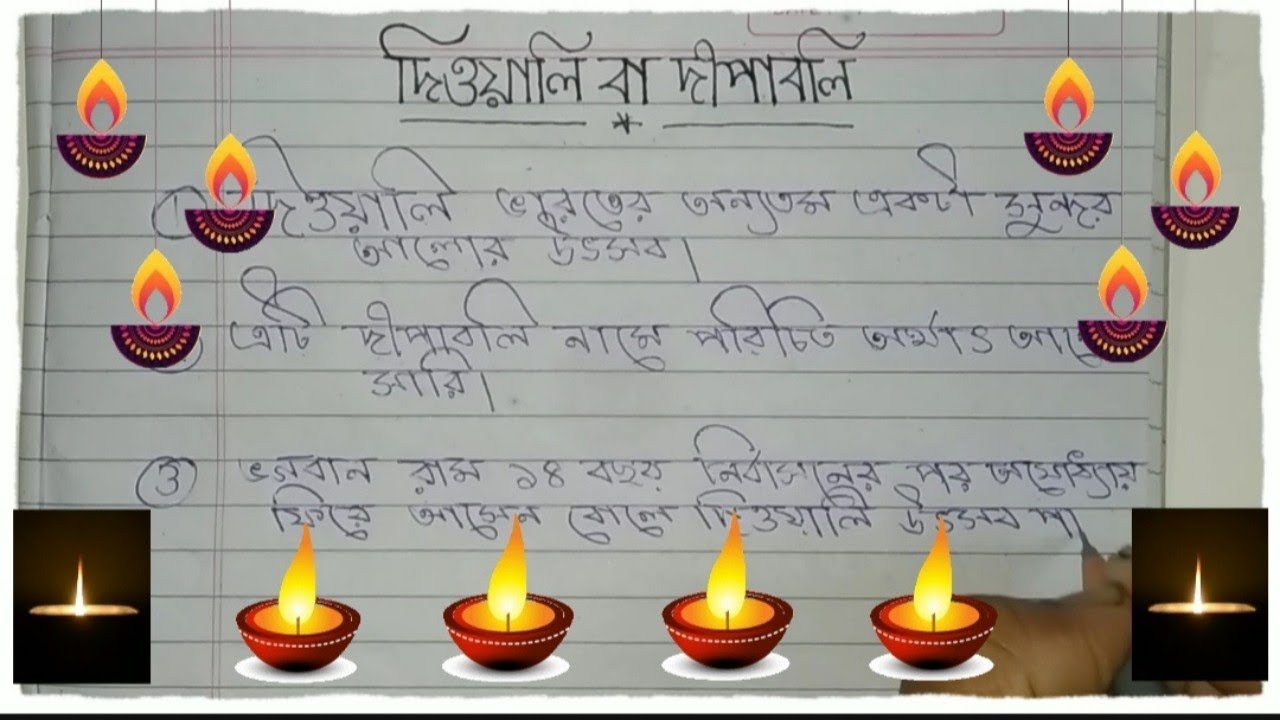 দিওয়ালি বা দীপাবলি
① দিওয়ালি ভারতের অন্যতম একটা সুন্দর
আলোর উৎসব।
এটি দীপাবলি নামে পরিচিত অর্থাৎ
সারি।
③ ভগবান রাম ১৪ বছর নির্বাসনের পর অযোধ্যায়
ফিরে আসেন বোলে দিওয়ালি উৎসব পা